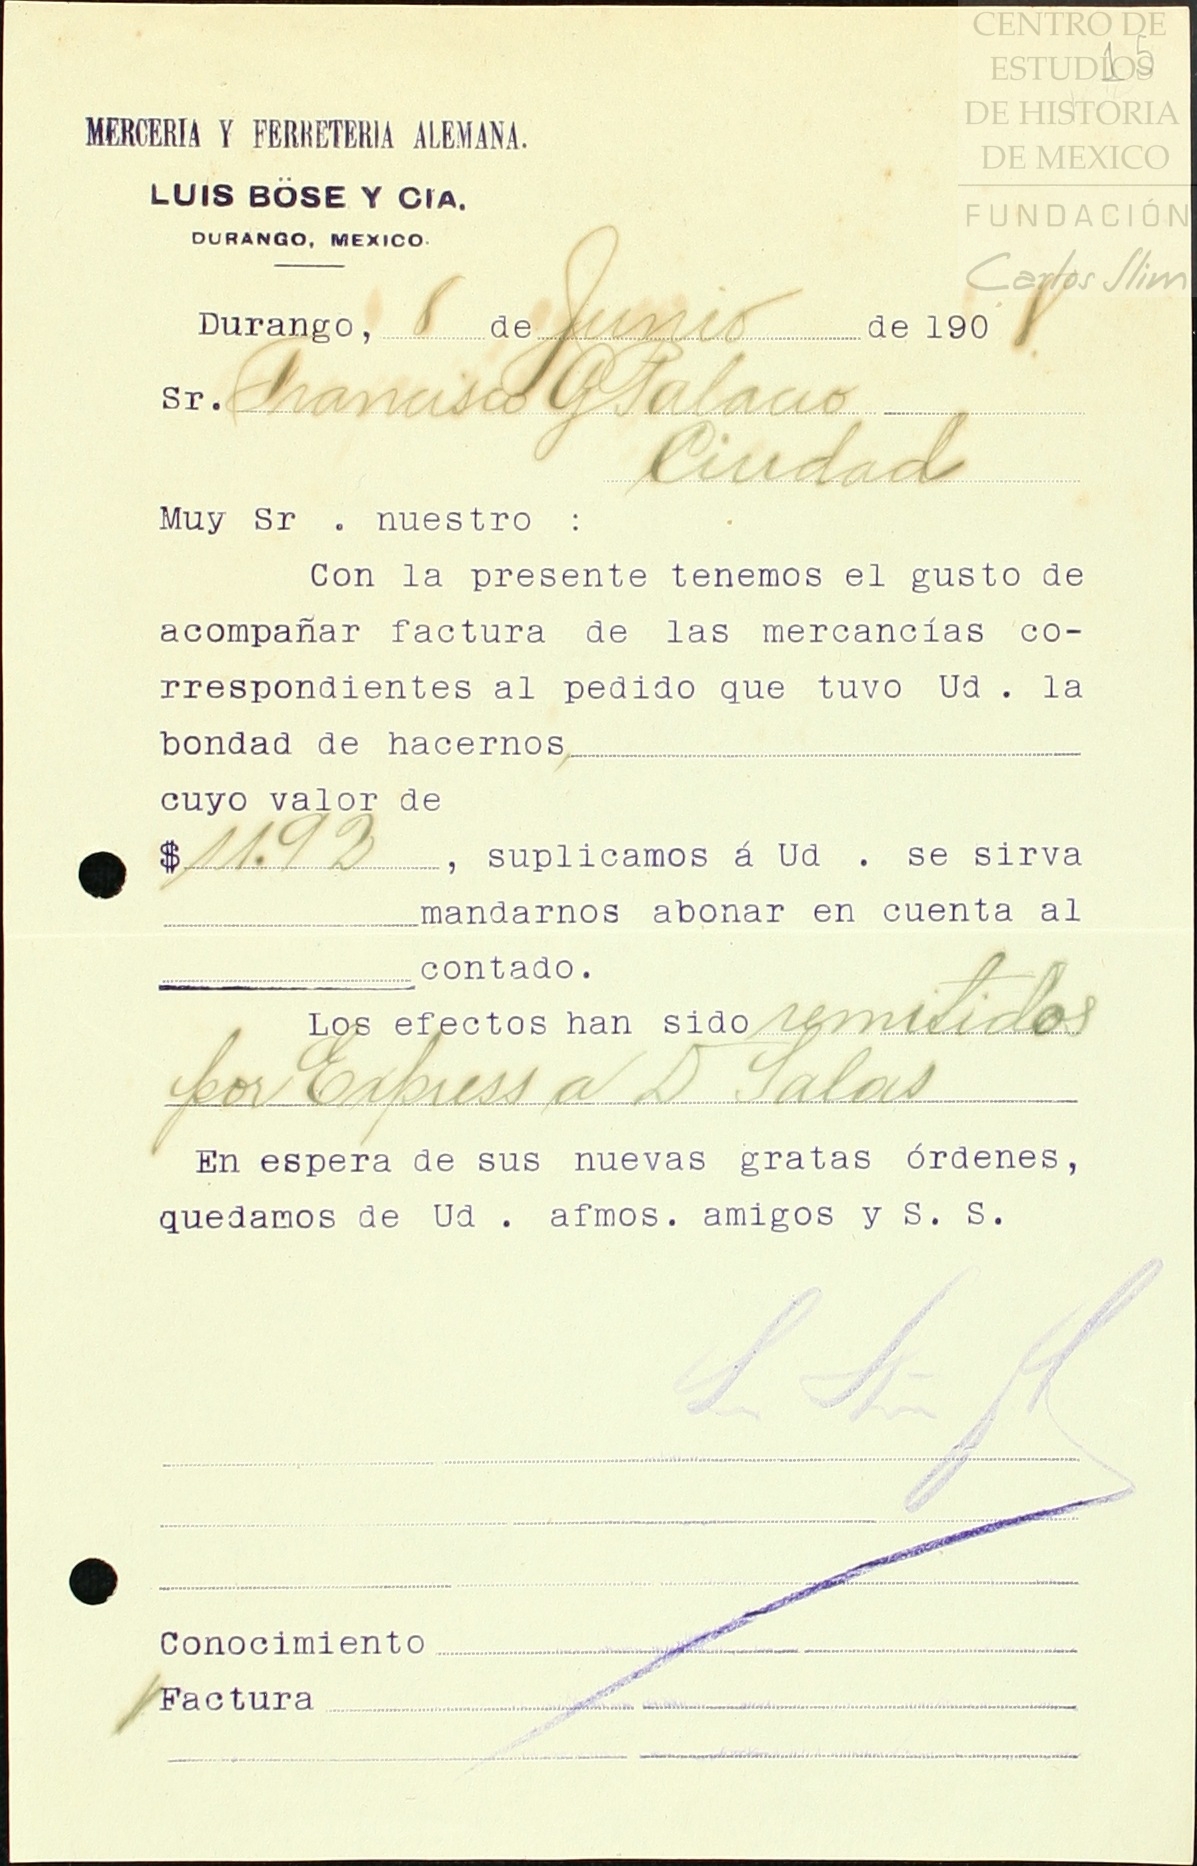 CENTRO DE
ESTUDIOS
DE HISTORIA
DE MEXICO
FUNDACIÓN
Carlos Slim
15
MERCERIA Y FERRETERIA ALEMANA.
LUIS BÖSE Y CIA.
DURANGO, MEXICO.
Durango, 8 de Junio de 1908.
Sr. Francisco G Palacio
Ciudad
Muy Sr . nuestro :
Con la presente tenemos el gusto de
acompañar factura de las mercancías co-
rrespondientes al pedido que tuvo Ud . la
bondad de hacernos,
cuyo valor de
$ 11.93 , suplicamos á Ud . se sirva
mandarnos abonar en cuenta al
contado.
Los efectos han sido remitidos
por Express a D Salas
En espera de sus nuevas gratas órdenes,
quedamos de Ud . afmos. amigos y S. S.
Conocimiento
1 Factura